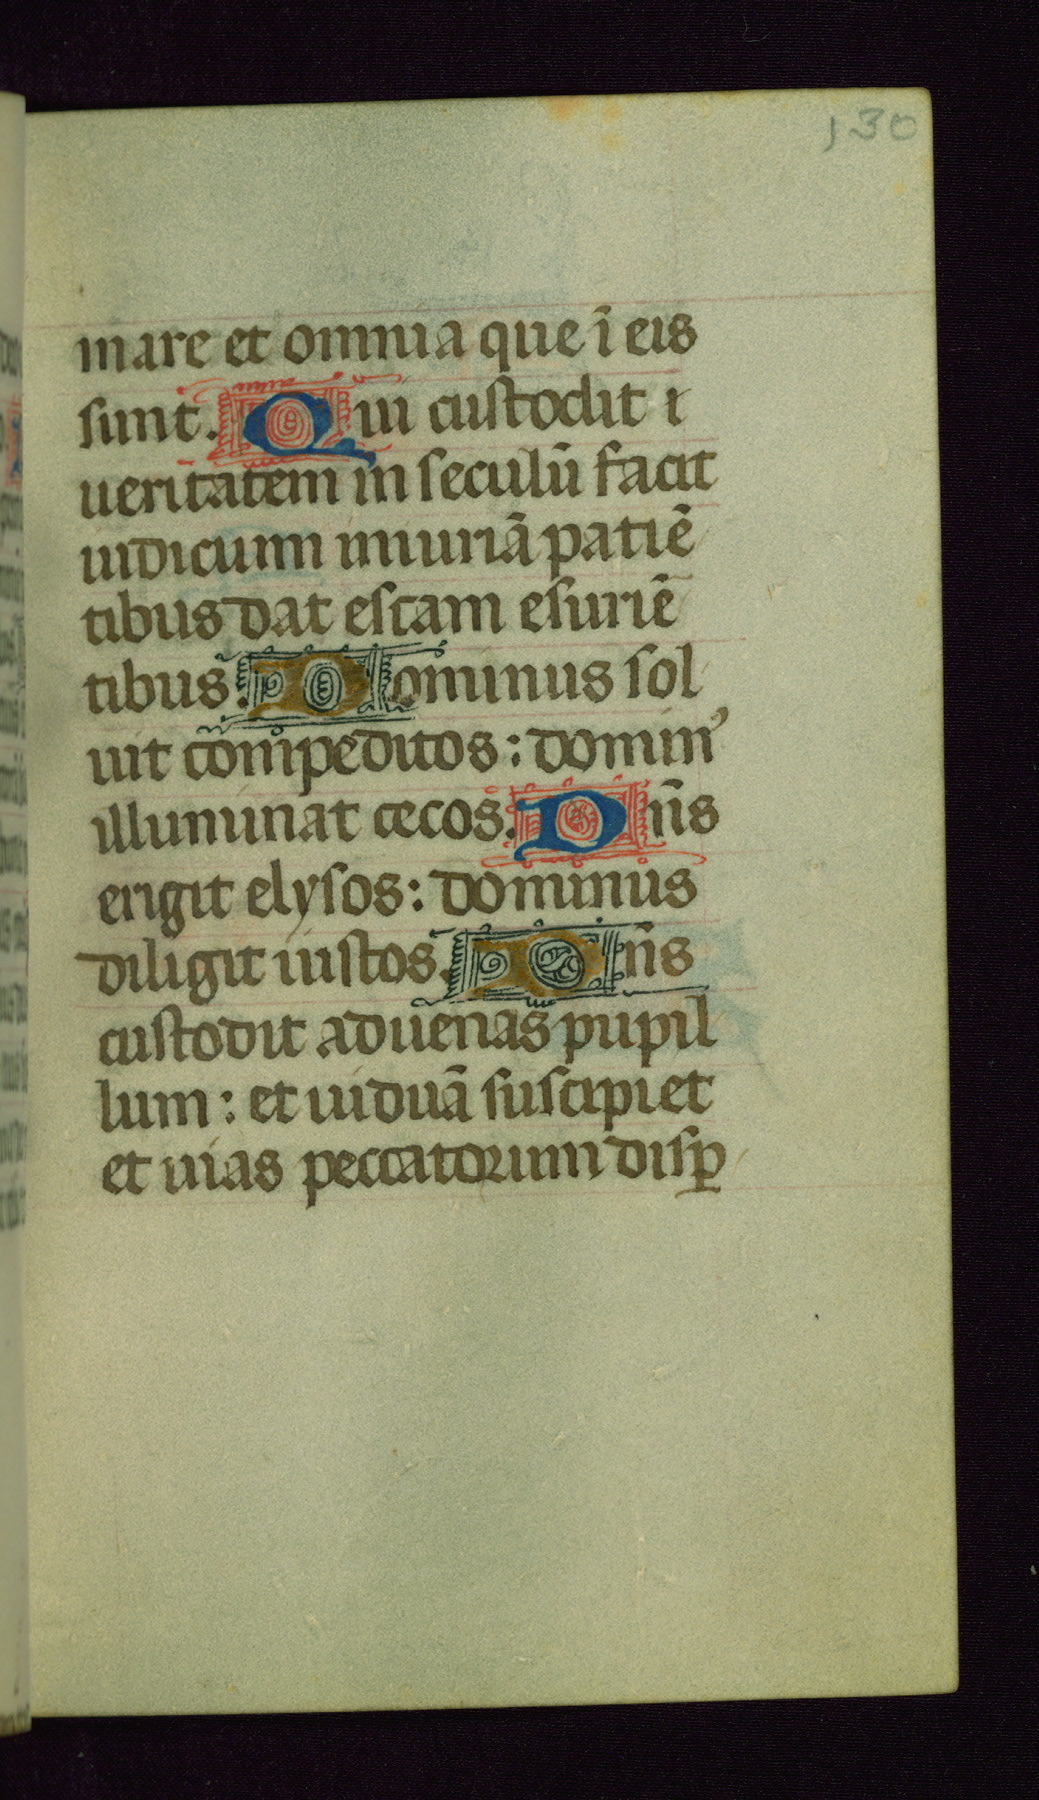 130
mare et omnia que ī eis
sunt. Qui custodit i
ueritatem in seculū facit
iudicium iniuriā patiē
tibus dat escam esuriē
tibus. Dominus sol
uit compeditos: domin᾽
illuminat cecos. Dn̄s
erigit elysos: dominus
diligit iustos. Dn̄s
custodit aduenas pupil
lum: et uiduā suscipiet
et uias peccatorum disꝑ